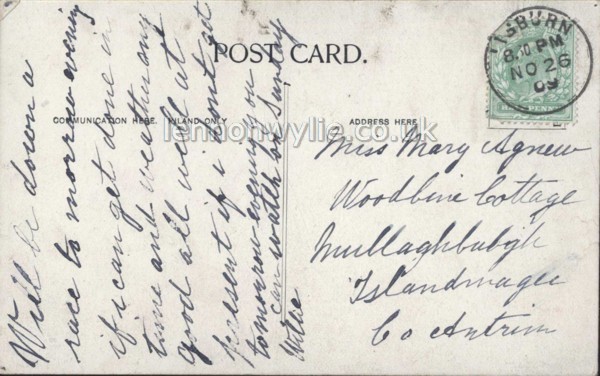 POST CARD.
COMMUNICATION HERE. INLAND ONLY
ADDRESS HERE
lennonwylie.co.uk
LISBURN
8.30 PM
NO 26
09
Will be down a
race to morrow evening
if i can get done in
time and weather any
good all well at
present if i dont get
tomorrow evening you
can watch on Sunday
Willie
Miss Mary Agnew
Woodbine Cottage
Mullaghbuboy
Islandmagee
Co Antrim